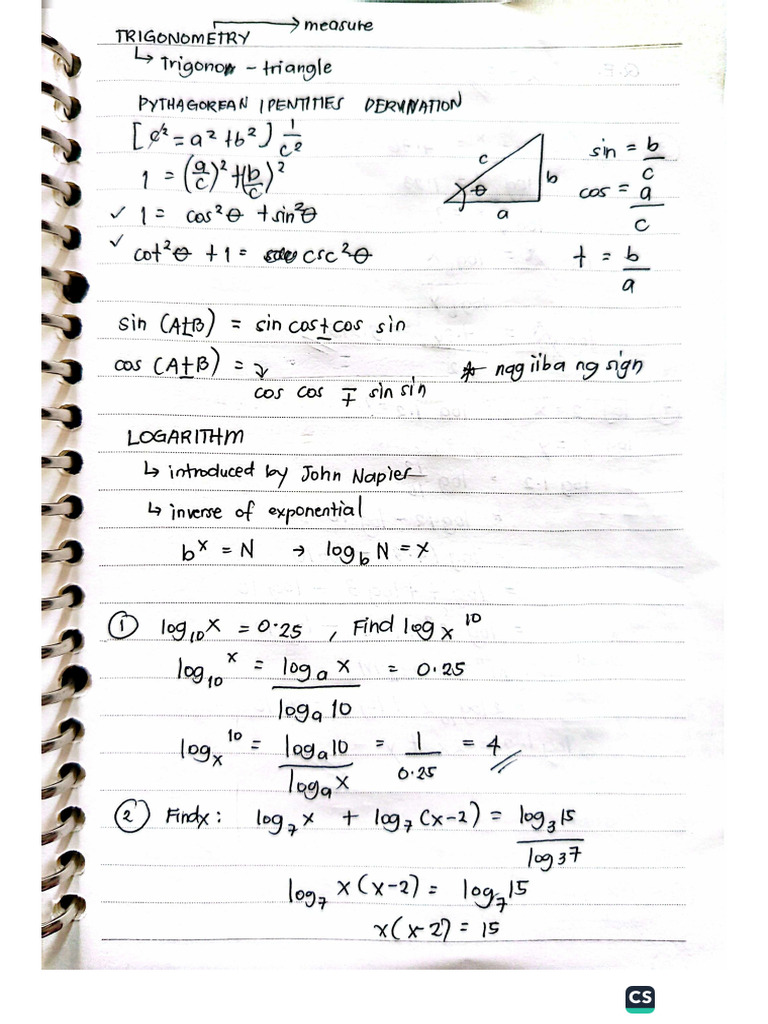 TRIGONOMETRY → measure
↳ trigonon - triangle
PYTHAGOREAN IDENTITIES DERIVATION
[c² = a² + b²] 1/c²
1 = (a/c)² + (b/c)²
✓ 1 = cos²θ + sin²θ
✓ cot²θ + 1 = csc²θ
c θ b a
sin = b/c
cos = a/c
t = b/a
sin (A±B) = sin cos ± cos sin
cos (A±B) = ↘
cos cos ∓ sin sin
* nag iiba ng sign
LOGARITHM
↳ introduced by John Napier
↳ inverse of exponential
bˣ = N → log_b N = x
① log₁₀x = 0.25 , Find logₓ 10
log₁₀ x = logₐ x / logₐ 10 = 0.25
logₓ 10 = logₐ10 / logₐx = 1/0.25 = 4
② Find x: log₇x + log₇(x-2) = log₃15 / log₃7
log₇ x(x-2) = log₇15
x(x-2) = 15
CS